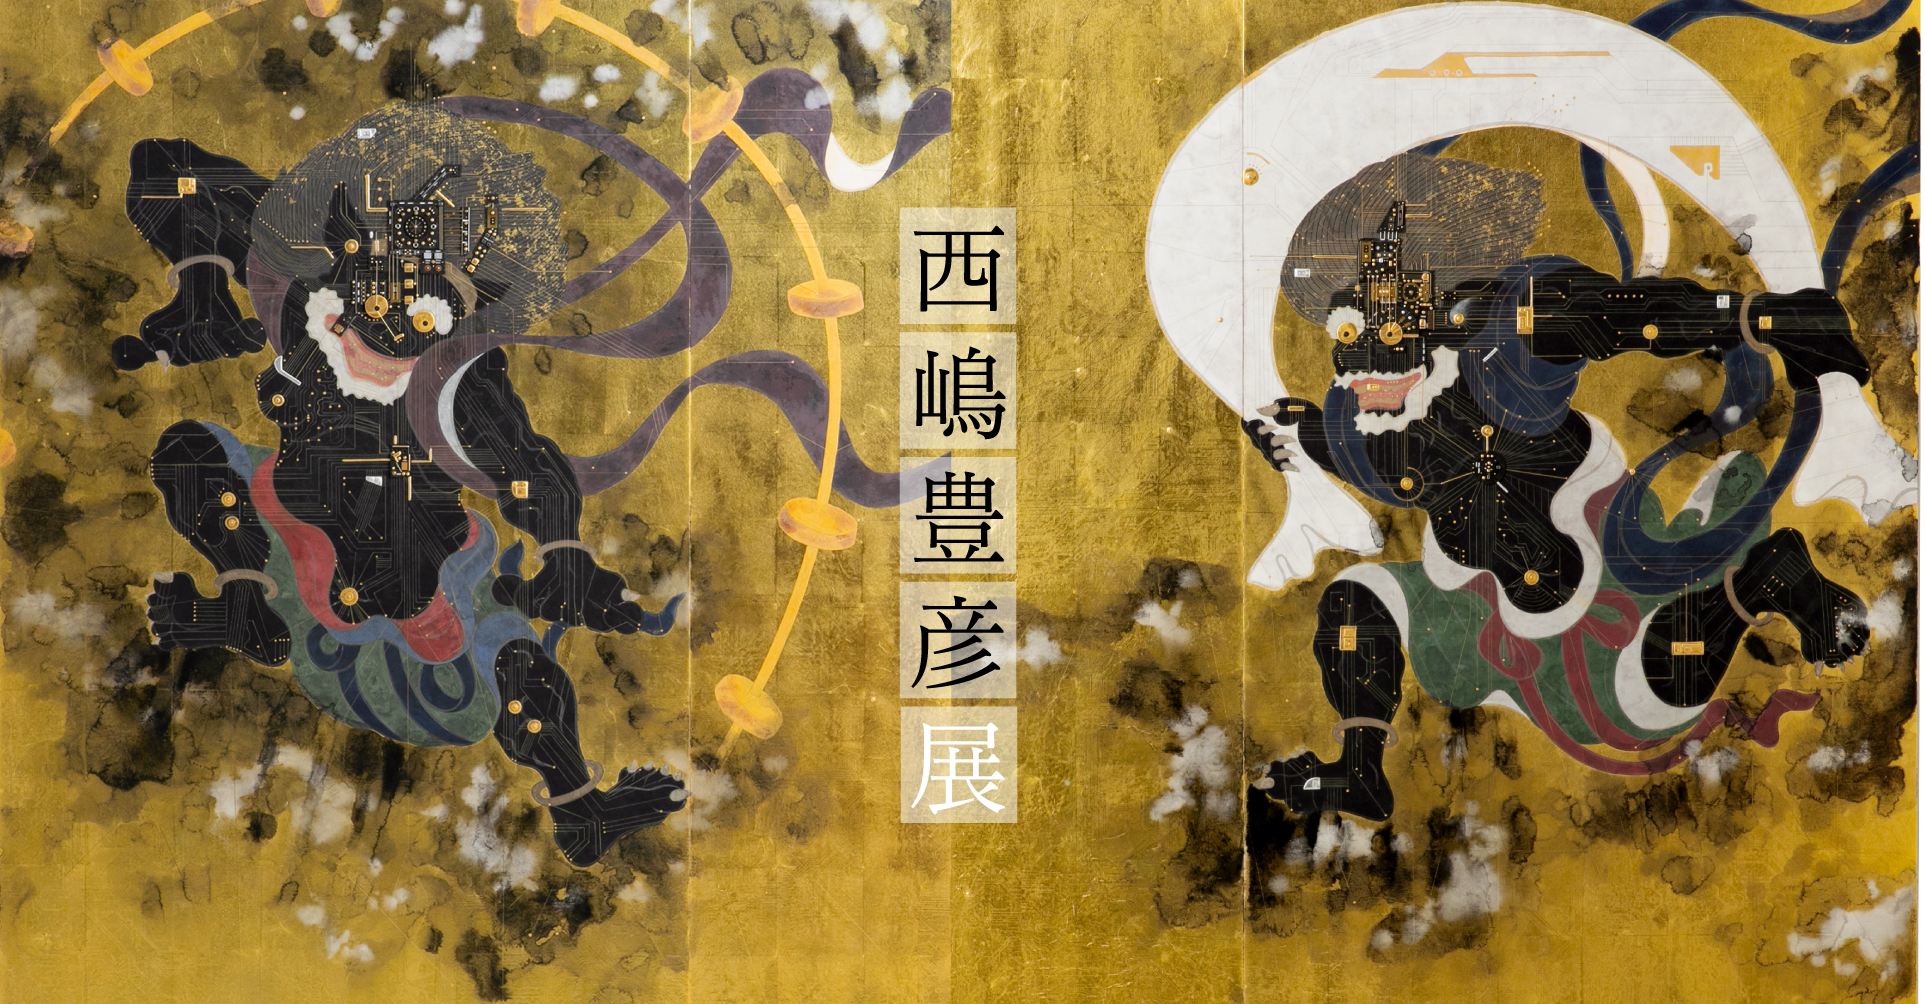 西嶋豊彦展